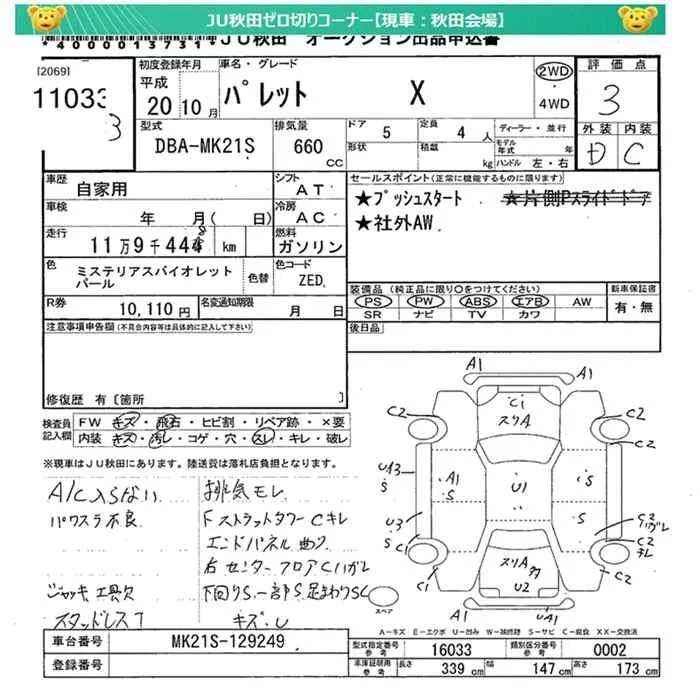 JU秋田ゼロ切りコーナー【現車：秋田会場】
*4000013731* JU秋田 オークション出品申込書
[2069]
11033
3
初度登録年月
平成
20 10 月
車名・グレード
パレット X
2WD
4WD
評価点
3
外装 内装
D C
型式
DBA-MK21S
排気量
660 CC
ドア 5
形状
定員 4 人
積載 kg
ディーラー・並行
モデル年式 年
ハンドル 左・右
車歴 自家用
シフト AT
車検 年 月( 日)
冷房 AC
走行 11万9千444 8 km
燃料 ガソリン
色 ミステリアスバイオレットパール
色替
色コード ZED
R券 10,110円
名変通知期限 月 日
セールスポイント(正常に機能するものに限ります)
★プッシュスタート ★片側Pスライドドア
★社外AW
装備品 (純正品に限り○をつけてください)
PS PW ABS エアB AW
SR ナビ TV カワ
新車保証書
有・無
後日品
注意事項申告欄(不具合内容等は具体的に記入して下さい)
修復歴 有〔箇所 〕
検査員記入欄
FW キズ・飛石・ヒビ割・リペア跡・×要
内装 キズ・汚レ・コゲ・穴・スレ・キレ・破レ
※現車はJU秋田にあります。陸送費は落札店負担となります。
A/C入らない
パワスラ不良
ジャッキ工具欠
スタッドレス
排気モレ
Fストラットタワー Cキレ
エンドパネル曲り
右センターフロアC1ハガレ
下回りS.一部S 足まわりSC
キズ.U
A1
A1
C1
スリA
C2
C2
UA3
S
A1
S
U1
S
U3
S
S
C2
ハガレ
C2
キレ
C1
C1
スリA
U2
C2
A1
A1
スペア
A-キズ E-エクボ U-凹み W-補修跡 S-サビ C-腐食 XX-交換済
車台番号 MK21S-129249
登録番号
型式指定番号 参考 16033
類別区分番号 参考 0002
車庫証明用 参考
長さ 339 cm
幅 147 cm
高さ 173 cm